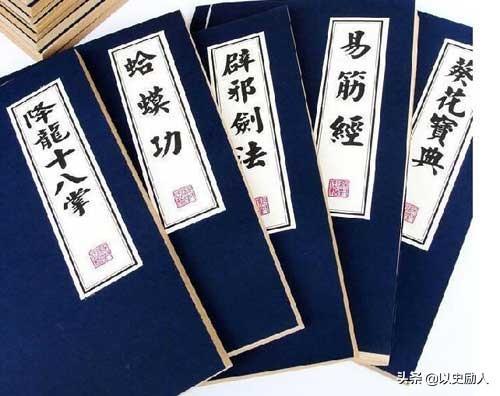 降龍十八掌
蛤蟆功
辟邪劍法
易筋經
葵花寶典
头条 @以史励人